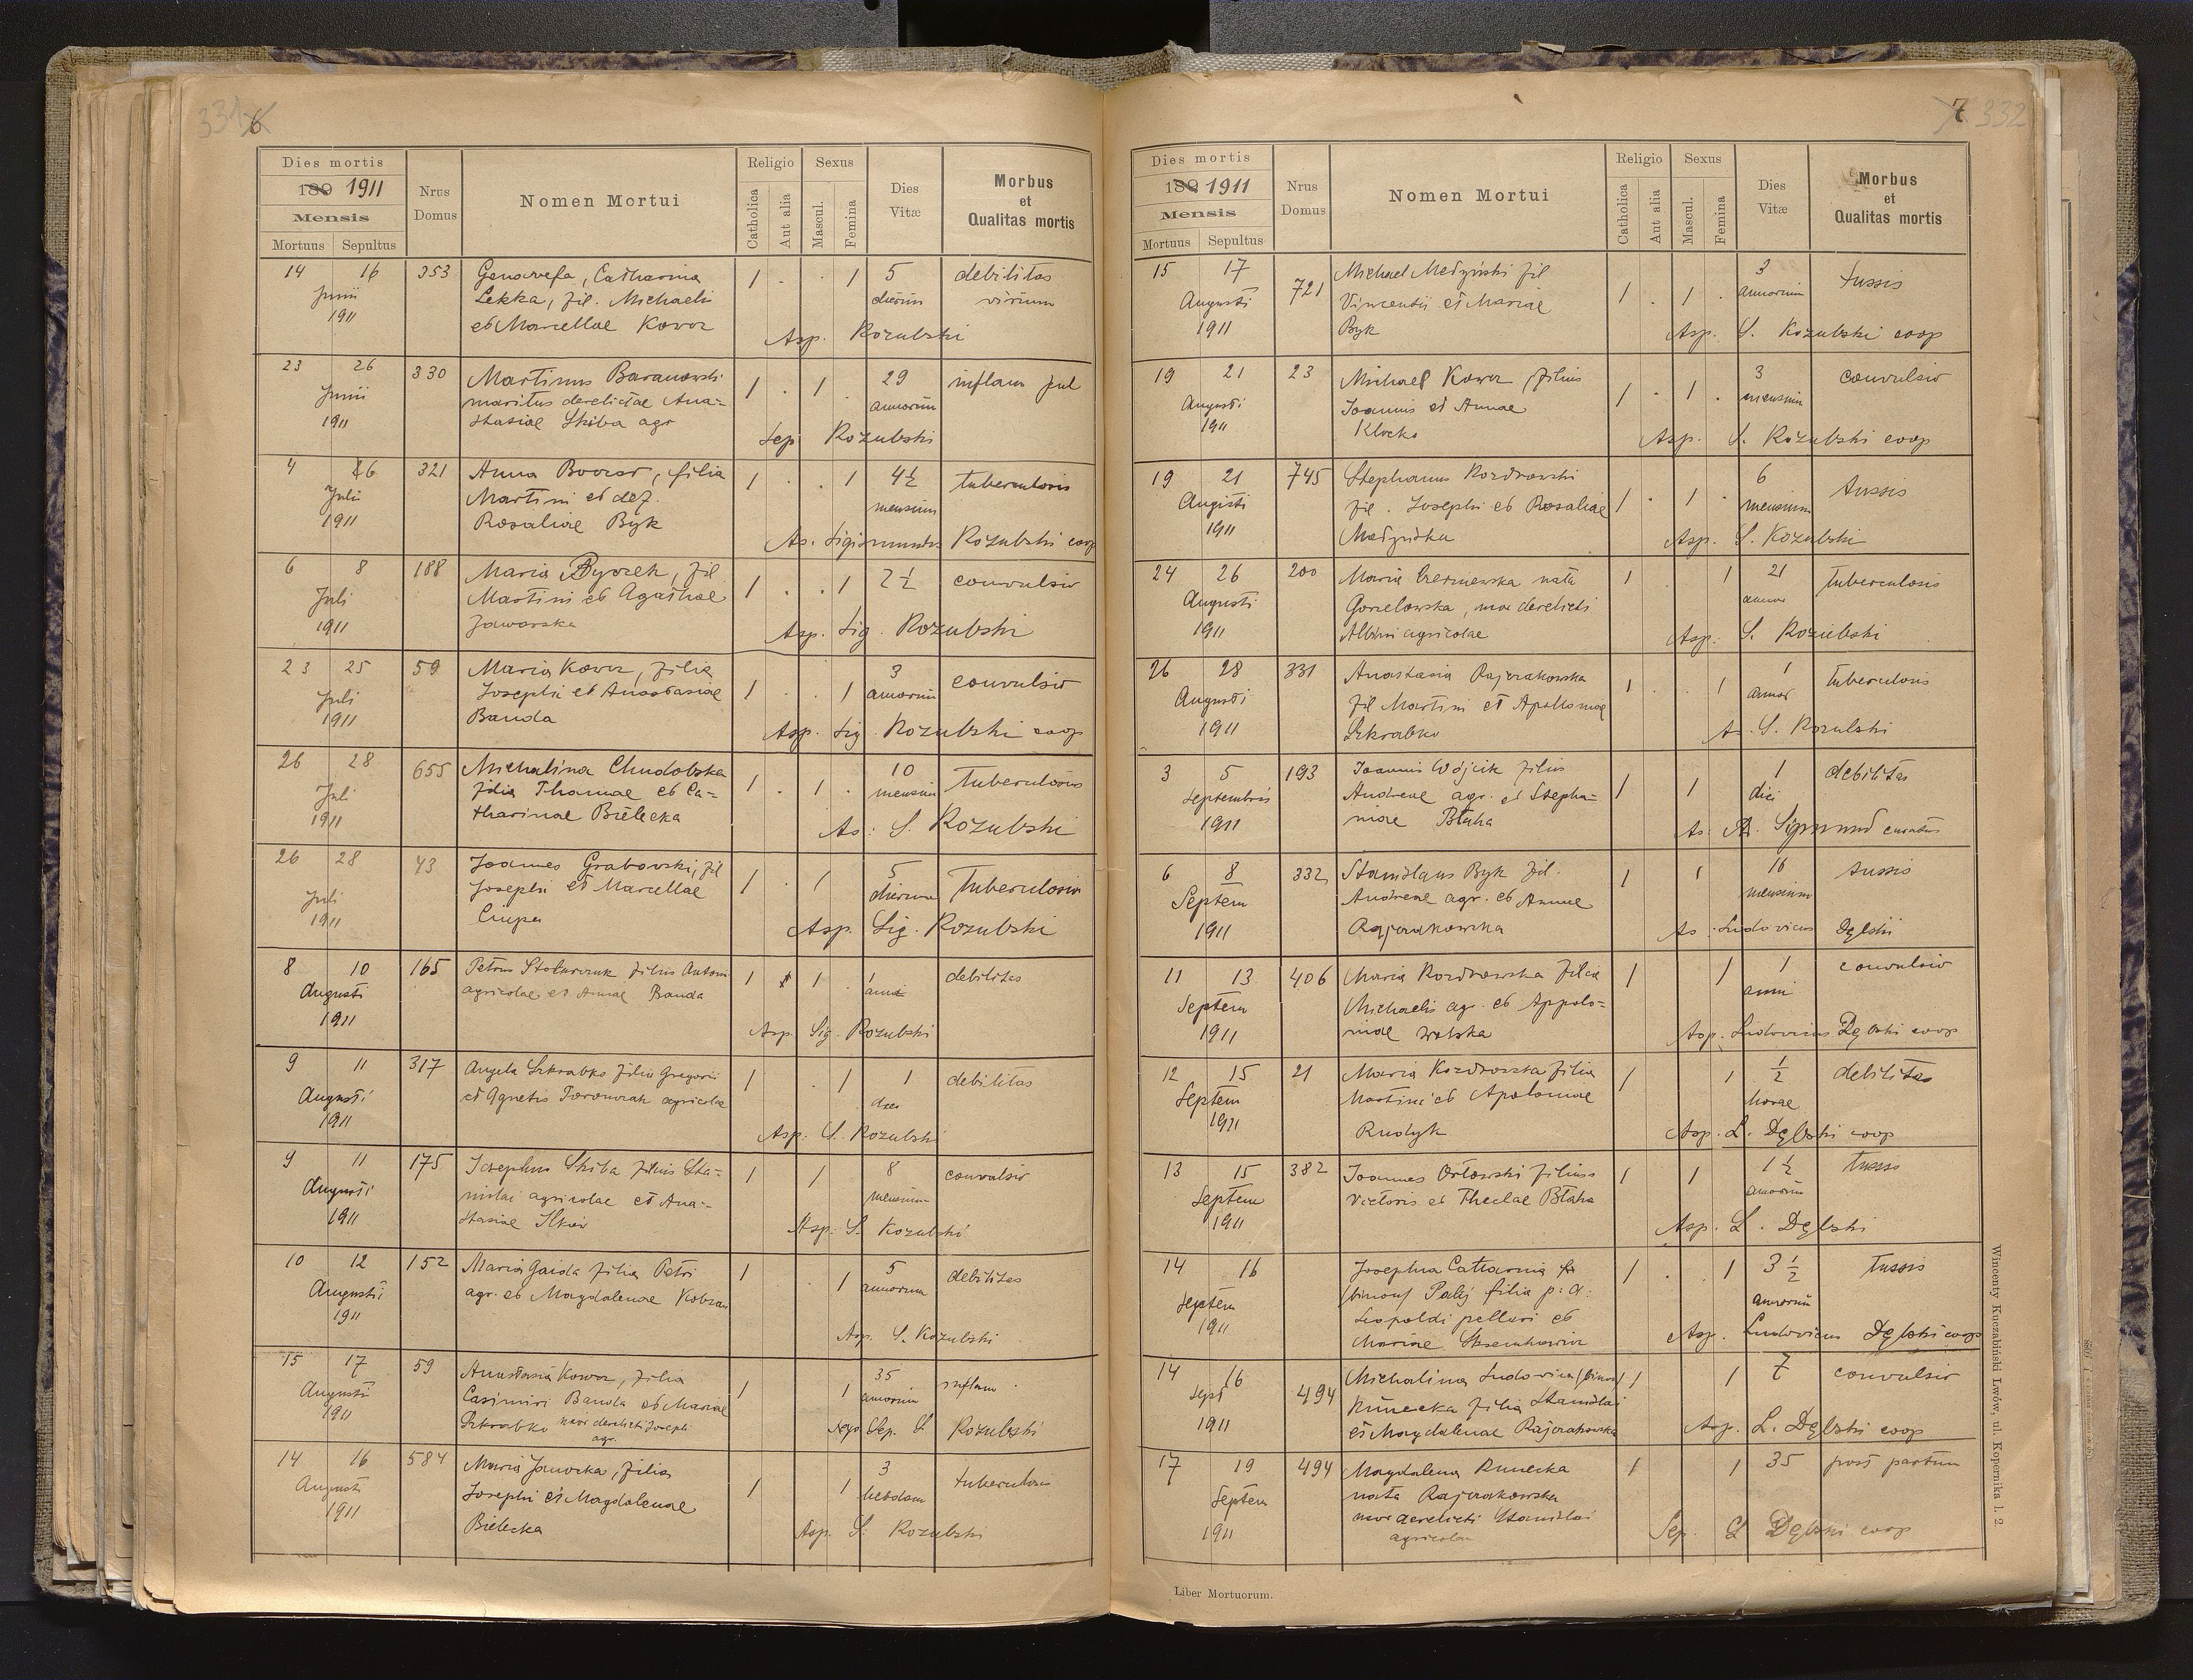 331 6
Dies mortis
189 1911
Mensis
Mortuus Sepultus
Nrus Domus
Nomen Mortui
Religio
Catholica
Aut alia
Sexus
Mascul.
Femina
Dies Vitæ
Morbus et Qualitas mortis
14 16 353 Genowefa, Catharina 1 . . 1 5 debilitas
Junii Lekka, fil. Michaelis dierum virium
1911 et Marcellae Kowcz
Asp. Kozubski
23 26 330 Martinus Baranowski 1 . 1 29 inflam pul
Junii maritus derelictae Ana= annorum
1911 stasiae Skiba agr
Sep Kozubski
4 6 321 Anna , filia 1 . . 1 4½ tuberculosis
Juli Martini et def. mensium
1911 Rosaliae Byk
As. Sigismundus Kozubski coop
6 8 188 Maria Byczek, fil 1 . . 1 2½ convulsio
Juli Martini et Agathae
1911 Jaworska
Asp. Sig. Kozubski
23 25 59 Maria Kowcz, filia 1 . . 1 3 convulsio
Juli Josephi et Anastasiae annorum
1911 Banda
Asp. Sig Kozubski coop
26 28 655 Michalina Chudobska 1 . 1 . 10 Tuberculosis
Juli filia Thomae et Ca= mensium
1911 tharinae Bielecka
As: S. Kozubski
26 28 43 Joannes Grabowski, fil 1 . 1 5 Tuberculosis
Juli Josephi et Marcellae dierum
1911 Ciupa
Asp. Sig. Kozubski
8 10 165 Petrus Stolarczuk filius Antoni 1 1 . 1 debilitas
Augusti agricolae et Annae Banda anni
1911
Asp Sig. Kozubski
9 11 317 Angela Szkrabko filia Gregorii 1 . 1 1 debilitas
Augusti et Agnetis agricolae dies
1911
Asp: S. Kozubski
9 11 175 Josephus Skiba filius Sta= 1 1 8 convulsio
Augusti nislai agricolae et Ana= mensium
1911 stasiae Ilków
Asp: S. Kozubski
10 12 152 Maria Gaida filia Petri 1 . 1 5 debilitas
Augusti agr. et Magdalenae annorum
1911
Asp. S. Kozubski
15 17 59 Anastasia Kowcz, filia 1 1 35 inflam
Augusti Casimiri Banda et Mariae annorum
1911 Szkrabko uxor derelicti Josephi
agr.
Sep. S Kozubski
14 16 584 Maria Janocka, filia 1 1 3 tuberculosis
Augusti Josephi et Magdalenae hebdom
1911 Bielecka
Asp. S: Kozubski
7 332
Dies mortis
189 1911
Mensis
Mortuus Sepultus
Nrus Domus
Nomen Mortui
Religio
Catholica
Aut alia
Sexus
Mascul.
Femina
Dies Vitæ
Morbus et Qualitas mortis
15 17 721 Michael Medyński fil 1 . 1 . 3 tussis
Augusti Vincentii et Mariae annorum
1911 Byk
Asp. S. Kozubski coop
19 21 23 Michael Kowcz, filius 1 . 1 . 3 convulsio
Augusti Joannis et Annae mensium
1911 Klocko
Asp. S. Kozubski coop
19 21 745 Stephanus Kozdrowski 1 . 1 . 6 tussis
Augusti fil. Josephi et Rosaliae mensium
1911 Medyńska
Asp. S. Kozubski
24 26 200 Maria Czerniewska nata 1 1 21 tuberculosis
Augusti Gorzelowska, uxor derelicti annor
1911 Albini agricolae
Asp: S. Kozubski
26 28 331 Anastasia Rajzakowska 1 . . 1 1 tuberculosis
Augusti fil Martini et Apolloniae annor
1911 Szkrabko
As. S. Kozubski
3 5 193 Joannis Wójcik filius 1 1 1 debilitas
Septembris Andreae agr. et Stepha= diei
1911 niae Błaha
As: Sigmund curatus
6 8 332 Stanislaus Byk fil. 1 1 16 tussis
Septem Andreae agr. et Annae mensium
1911 Rajzakowska
As. Ludovicus Dębski
11 13 406 Maria Kozdrowska filia 1 1 1 convulsio
Septem Michaelis agr. et Appolo= anni
1911 niae Wolska
Asp. Ludovicus Dębski coop
12 15 21 Maria Kozdrowska filia 1 1 ½ debilitas
Septem Martini et Apoloniae horae
1911 Rudyk
Asp. L. Dębski coop
13 15 382 Joannes Orłowski filius 1 1 1½ tussis
Septem Victoris et Theclae Błaha annorum
1911
Asp. L. Dębski
14 16 Josephina Catharina 1 . . 1 3½ tussis
Septem (binom) Palij filia p: d: annorum
1911 Leopoldi pellari et
Mariae
Asp. Ludovicus Dębski coop
14 16 494 Michalina Ludovica (binom) 1 1 7 convulsio
Sept Kunecka filia Stanislai
1911 et Magdalenae Rajzakowska
Asp. L. Dębski coop
17 19 494 Magdalena Kunecka 1 1 35 post partum
Septem nata Rajzakowska
1911 uxor derelicti Stanislai
agricolae
Sep. L Dębski coop
Liber Mortuorum.
Wincenty Kuczabiński Lwów, ul. Kopernika l. 2.